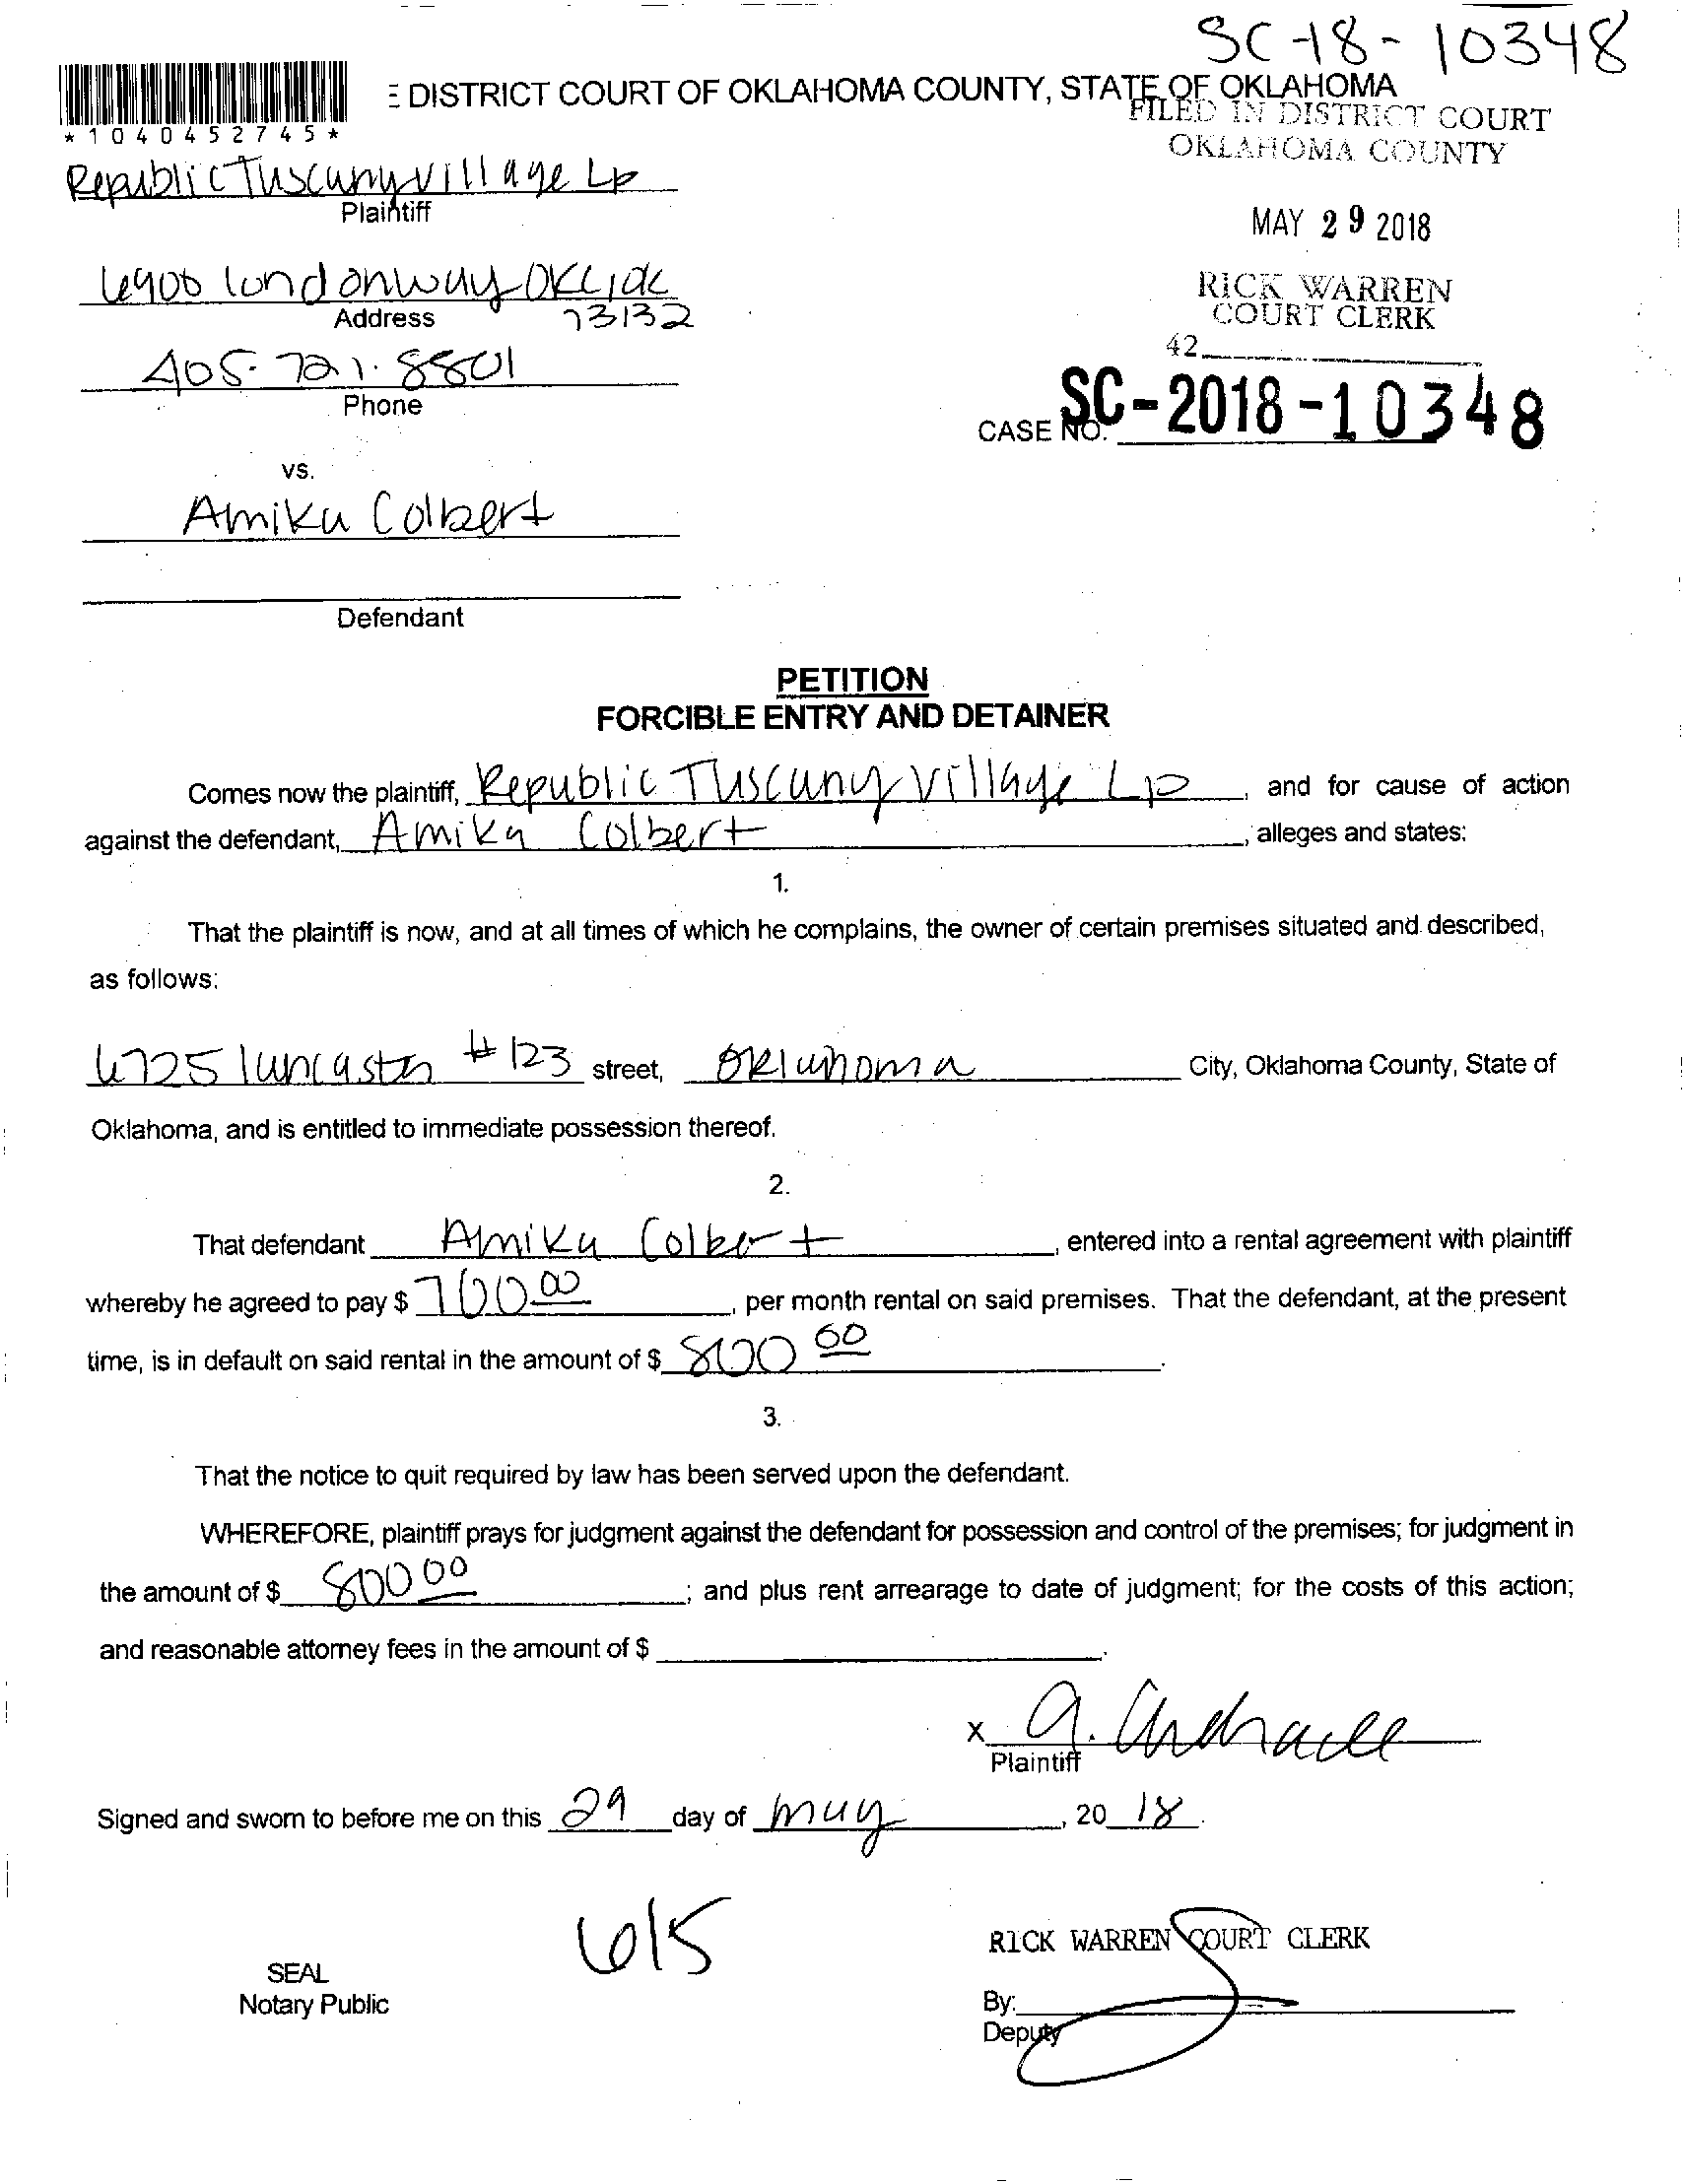 SC-18-10348
E DISTRICT COURT OF OKLAHOMA COUNTY, STATE OF OKLAHOMA
*1040452745*
FILED IN DISTRICT COURT
OKLAHOMA COUNTY
Republic Tuscany Village LP
Plaintiff
MAY 29 2018
6900 london way OKC, OK
73132
Address
RICK WARREN
COURT CLERK
405-721-8801
Phone
42
CASE NO. SC-2018-10348
vs.
Amika Colbert
Defendant
PETITION
FORCIBLE ENTRY AND DETAINER
Comes now the plaintiff, Republic Tuscany Village LP, and for cause of action
against the defendant, Amika Colbert, alleges and states:
1.
That the plaintiff is now, and at all times of which he complains, the owner of certain premises situated and described,
as follows:
6725 lancaster #123 street, Oklahoma City, Oklahoma County, State of
Oklahoma, and is entitled to immediate possession thereof.
2.
That defendant Amika Colbert, entered into a rental agreement with plaintiff
whereby he agreed to pay $ 700.00, per month rental on said premises. That the defendant, at the present
time, is in default on said rental in the amount of $ 800 00.
3.
That the notice to quit required by law has been served upon the defendant.
WHEREFORE, plaintiff prays for judgment against the defendant for possession and control of the premises; for judgment in
the amount of $ 800 00; and plus rent arrearage to date of judgment; for the costs of this action;
and reasonable attorney fees in the amount of $
x a. Andrade
Plaintiff
Signed and sworn to before me on this 29 day of may, 20 18.
6/5
RICK WARREN COURT CLERK
SEAL
Notary Public
By:
Deputy